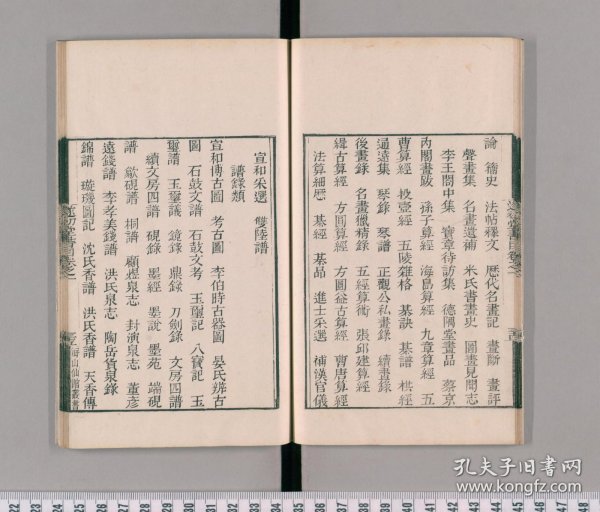 論 籀史 法帖釋文 歷代名畫記 畫斷 畫評
聲畫集 名畫遺補 米氏書畫史 圖畫見聞志
李王閣中集 寶章待訪集 德隅堂畫品 蔡京
內閣畫跋 孫子算經 海島算經 九章算經 五
曹算經 投壺經 五陵雜格 棊訣 棊譜 棋經
通遠集 琴錄 琴譜 正觀公私畫錄 續畫錄
後畫錄 名畫獵精錄 五經算術 張邱建算經
緝古算經 方圓算經 方圓益古算經 曹唐算經
法算細歷 棊經 棊品 進士采選 補漢官儀
宣和采選 雙陸譜
譜錄類
宣和博古圖 考古圖 李伯時古器圖 晏氏辨古
圖 石鼓文譜 石鼓文考 玉璽記 八寶記 玉
璽譜 玉璽議 鏡錄 鼎錄 刀劍錄 文房四譜
續文房四譜 硯錄 墨經 墨說 墨苑 端硯
譜 歙硯譜 桐譜 顧烜泉志 封演泉志 董彥
遠錢譜 李孝美錢譜 洪氏泉志 陶岳貨泉錄
錦譜 璇璣圖記 沈氏香譜 洪氏香譜 天香傳
遂初堂書目
海山仙館叢書
孔夫子旧书网
www.kongfz.com
22 21 20 19 18 17